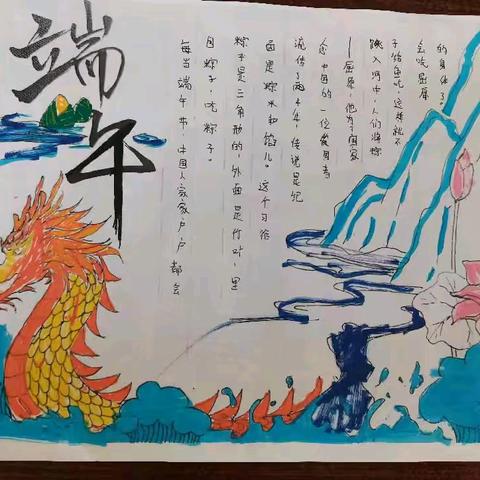 端午
每当端午节,中国人家家户户都会
包粽子,吃粽子。
粽子是三角形的,外面是竹叶,里
面是粽米和馅儿。这个习俗
流传了两千年,传说是纪
念中国的一位爱国者
——屈原,他为了国家
跳入河中,人们将粽
子给鱼吃,这样就不
会吃屈原
的身体了。